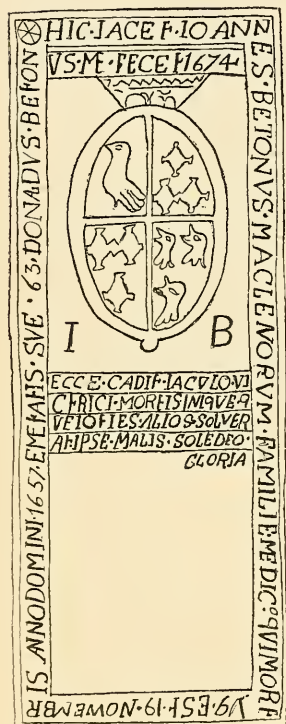 HIC·IACET·IOANN
ES·BETONVS·MACLENORVM·FAMILIE·MEDIC⁹·QVIMORT
V9·EST·19·NOWEMBR
IS ANNODOMINI·1657·EMETATIS·SVE·63·DONADVS·BETON
VS·ME·FECET·1674
I B
ECCE·CADIT·IACVLO·VI
CTRICI·MORTIS INIQVE·Q
VITOTIES·ALIO9·SOLVER
ATIPSE·MALIS·SOLEDEO·
GLORIA